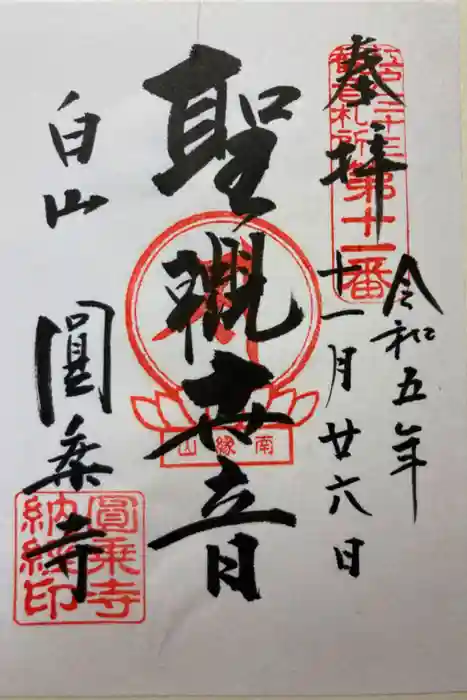 奉拝
江戸三十三
観音札所
第十一番
令和五年
十一月廿六日
聖觀世音
南縁山
白山
圓乗寺
圓乗寺
納経印